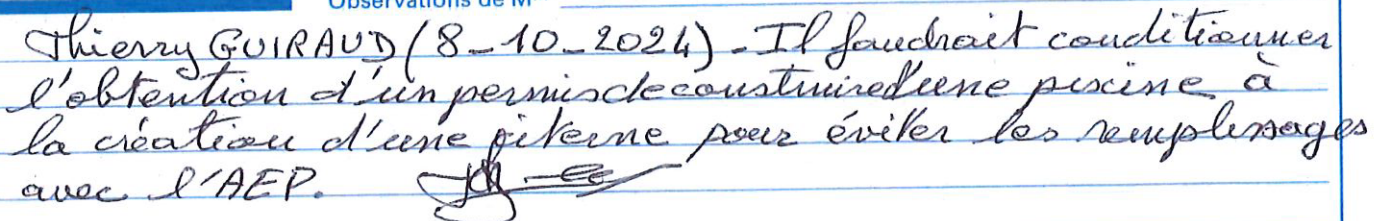 Observations de M
Thierry GUIRAUD (8_10_2024) - Il faudrait conditionner
l'obtention d'un permis de construire d'une piscine à
la création d'une citerne pour éviter les remplissages
avec l'AEP.